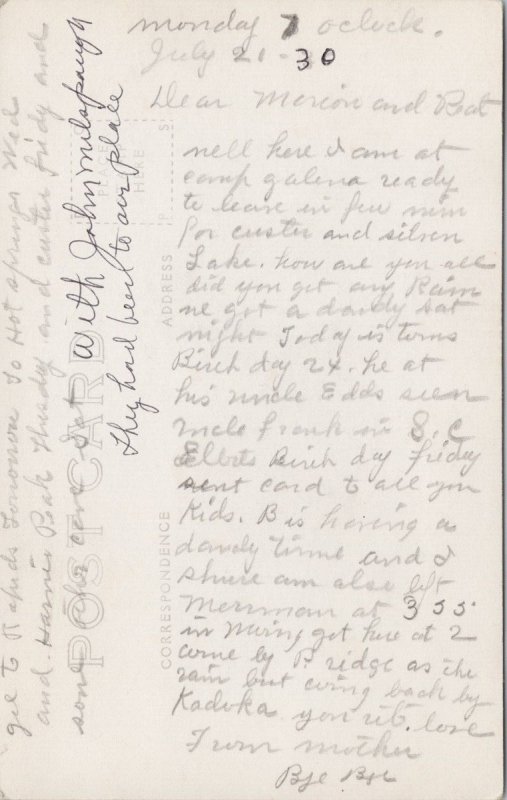 monday 7 oclock.
July 21-30
Dear Merion and Beat
well here I am at
camp galena ready
to leave in few min
for custer and silven
Lake. how are you all
did you get any Rain
we got a dandy sat
night Today is toms
Birth day 24. he at
his uncle Edds seen
uncle frank in S. C
Elberts Birth day friday
sent card to all you
Kids. B is having a
dandy time and I
shure am also left
Merriman at 355
in Mering got here at 2
come by P. ridge as the
rain but coing back by
Kadoka. you rite. love
From mother
Bye Bye
get to Rapids Tomorrow to Hot springs Wed
and. Harnis Peak Thusday and custer fridy and
some other cars sat
With John milspaugh
they had been to our place
POST CARD
CORRESPONDENCE
ADDRESS
PLACE
HERE